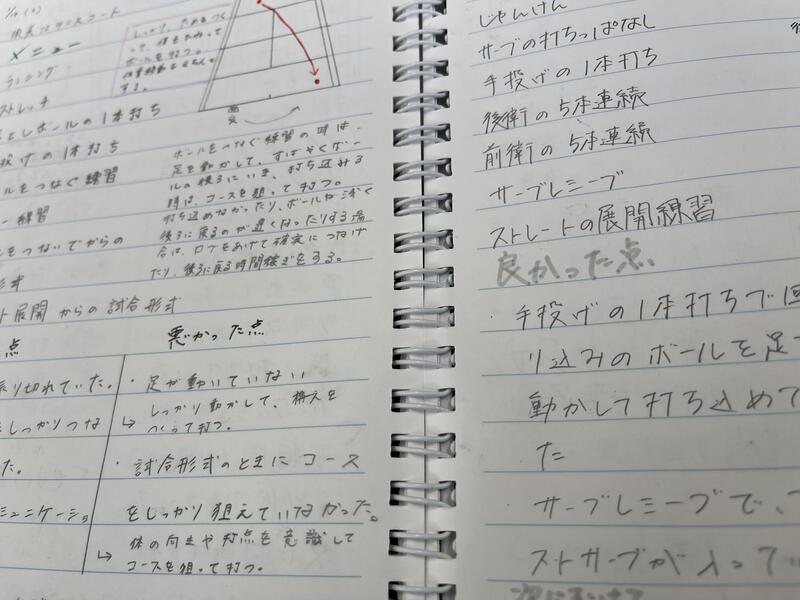 メニュー
ランニング
ストレッチ
しっかり、ためをつく
って、体をためて、
ボールを打つ。
する。
としボールの1本打ち
投げの1本打ち
ルをつなぐ練習
ー練習
をつないでからの
形式
ト展開からの試合形式
ボールをつなぐ練習の時は、
足を動かして、すばやくボー
ルの後ろにいき、打ち込める
時は、コースを狙って打つ。
打ち込めなかったり、ボールが浅く
後ろに戻るのが遅くなったりする場
合は、ロブをあげて確実につなげ
たり、後ろに戻る時間稼ぎをする。
点
振り切れていた。
しっかりつな
た。
ミュニケーショ
悪かった点
・足が動いていない
↳しっかり動かして、構えを
つくって打つ。
・試合形式のときにコース
をしっかり狙えていなかった。
↳体の向きや打点を意識して
コースを狙って打つ。
じゃんけん
サーブの打ちっぱなし
手投げの1本打ち
後衛の5本連続
前衛の5本連続
サーブレシーブ
ストレートの展開練習
良かった点
・手投げの1本打ちで回
り込みのボールを足
動かして打ち込めて
た
サーブレシーブで、
ストサーブが入ってい